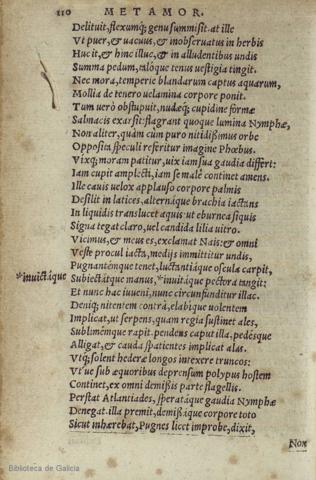 110 METAMOR.
Delituit, flexumq́; genu summisit. at ille
Vt puer, & vacuus, & inobseruatus in herbis
Huc it, & hinc illuc, & in alludentibus undis
Summa pedum, talóque tenus uestigia tingit.
Nec mora, temperie blandarum captus aquarum,
Mollia de tenero uelamina corpore ponit.
Tum uerò obstupuit, nudæq́; cupidine formæ
Salmacis exarsit: flagrant quoque lumina Nymphæ,
Non aliter, quàm cùm puro nitidißimus orbe
Opposita speculi refertur imagine Phœbus.
Vixq́; moram patitur, uix iam sua gaudia differt:
Iam cupit amplecti, iam se malè continet amens.
Ille cauis uelox applauso corpore palmis
Desilit in latices, alternáque brachia iactans
In liquidis translucet aquis: ut eburnea siquis
Signa tegat claro, uel candida lilia uitro.
Vicimus, & meus es, exclamat Nais: & omni
Veste procul iacta, medijs immittitur undis,
Pugnantémque tenet, luctantiáque oscula carpit,
*inuictáque Subiectátque manus, *inuitáque pectora tangit:
Et nunc hac iuueni, nunc circunfunditur illac.
Deniq; nitentem contrà, elabique uolentem
Implicat, ut serpens, quam regia sustinet ales,
Sublimémque rapit. pendens caput illa, pedésque
Alligat, & cauda spatientes implicat alas.
Vtq́; solent hederæ longos intexere truncos:
Vtq́ue sub æquoribus deprensum polypus hostem
Continet, ex omni demißis parte flagellis.
Perstat Atlantiades, speratáque gaudia Nymphæ
Denegat. illa premit, demißáque corpore toto
Sicut inhærebat, Pugnes licet improbe, dixit,
Non
Biblioteca de Galicia